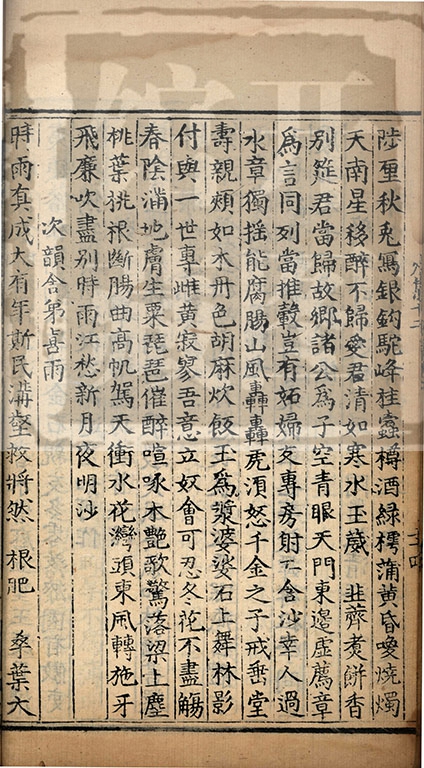 陟厘秋兎寫銀鈎駝峰桂蠹樽酒綠樗蒲黄昏喚燒燭
天南星移醉不歸愛君清如寒水玉葳 韭薺煑餅香
别筵君當歸故鄉諸公爲子空青眼天門東邊虚薦章
爲言同列當推轂豈有妬婦反專房射工含沙幸人過
水章獨摇能腐腸山風轟轟虎湏怒千金之子戒垂堂
壽親頰如木丹色胡麻炊飯玉爲漿婆婆石上舞林影
付與一世專雌黄寂寥吾意立奴會可忍冬花不盡觴
春陰滿地膚生粟琵琶催醉喧啄木艶歌驚落梁上塵
桃葉桃根斷腸曲高帆駕天衝水花灣頭東風轉施牙
飛廉吹盡别時雨江愁新月夜明沙
次韻舍弟喜雨
時雨真成大有年斯民溝壑救將然 根肥 王孽葉大